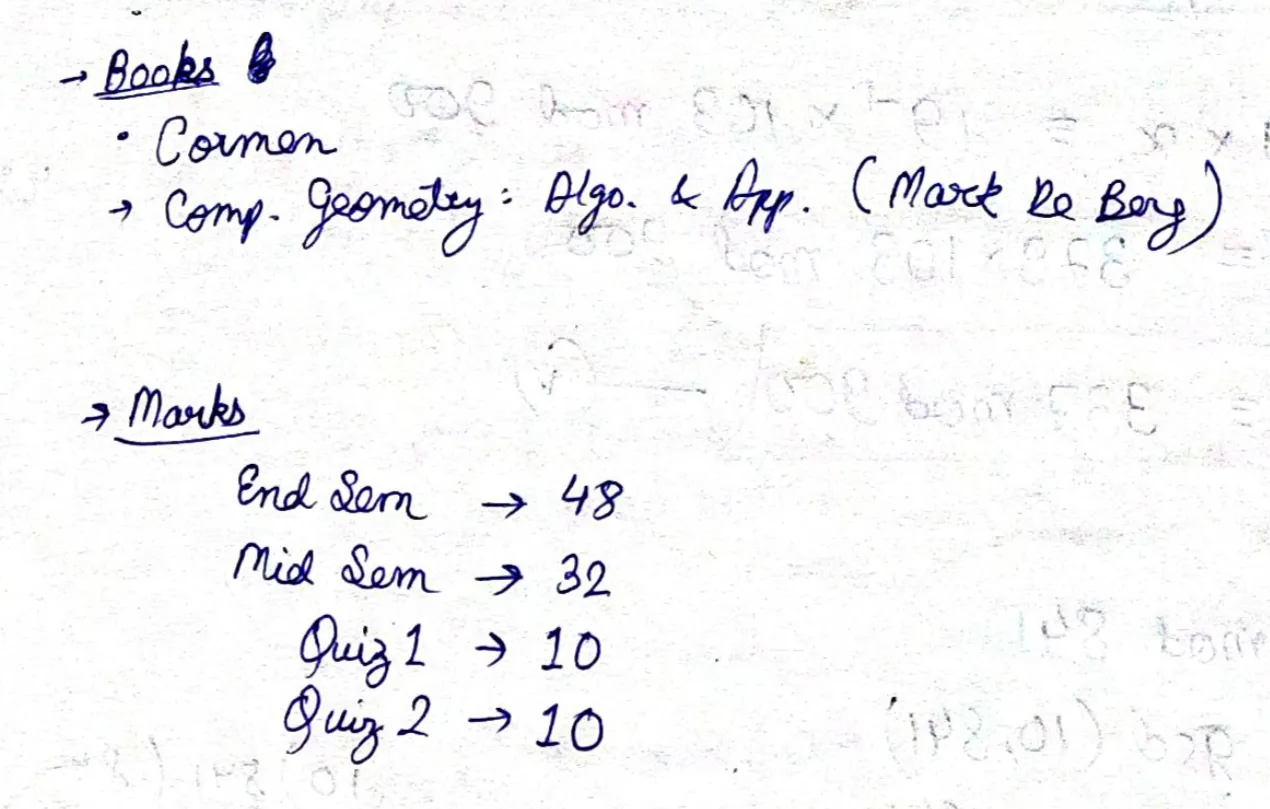 → Books
• Cormen
→ Comp. Geometry : Algo. & App. (Mark De Berg)
→ Marks
End Sem → 48
Mid Sem → 32
Quiz 1 → 10
Quiz 2 → 10